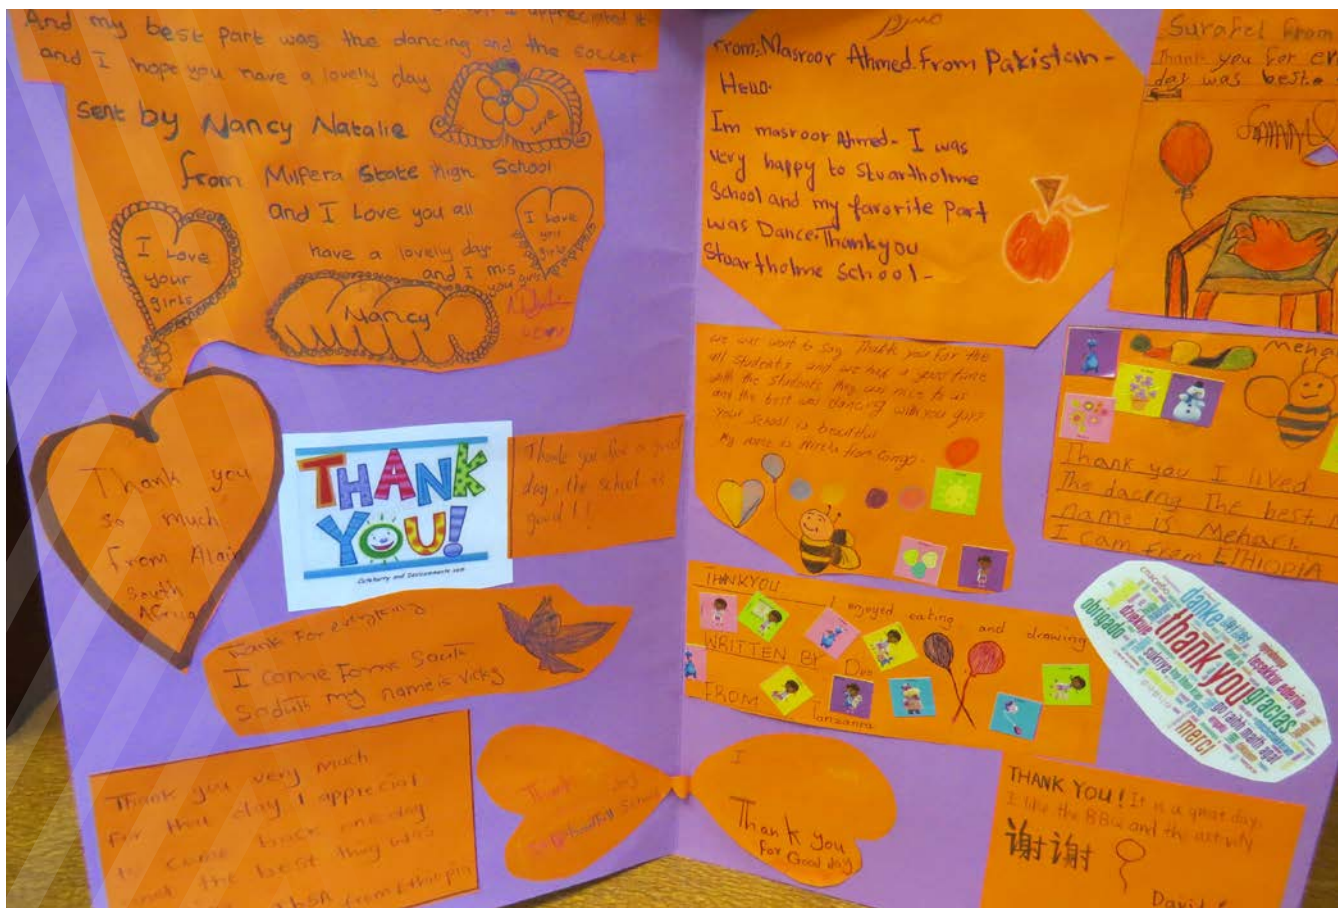 I appreciated it
And my best part was the dancing and the soccer
and I hope you have a lovely day
sent by Nancy Natalie
from Milpera State high School
and I Love you all
have a lovely day
and I mis
you girls
Love
I Love
your
girls
I Love
you
girls
Nancy
Thank you
so much
From Alain
South
Africa
THANK
YOU!
Thank you for a good
day, the school is
good!!
Tank For everything
I come Form South
my name is Vicky
Thank you very much
For thu day I appreciat
to come back one day
and the best thing was
from Ethiopia
Thank
School
From: Masroor Ahmed. From Pakistan-
Hello.
Im masroor Ahmed- I was
very happy to Stuartholme
School and my favorite Part
was Dance. Thankyou
Stuartholme School-
Surafel From
Thank you for
day was best.
we was want to say Thank you For the
all students and we had a good time
with the students they was nice to us
and the best was dancing with you guys
Your school is beautiful
My name is from Congo.
Thank you I lived
The dacing The best
name is Mehari
I cam From ETHIOPIA
THANKYOU I enjoyed eating and drawing
WRITTEN BY
FROM Tanzania
danke
obrigado
thank you
gracias
merci
I
Thank you
For Good day
THANK YOU! It is a great day.
I like the BBQ and the activity
谢谢
David